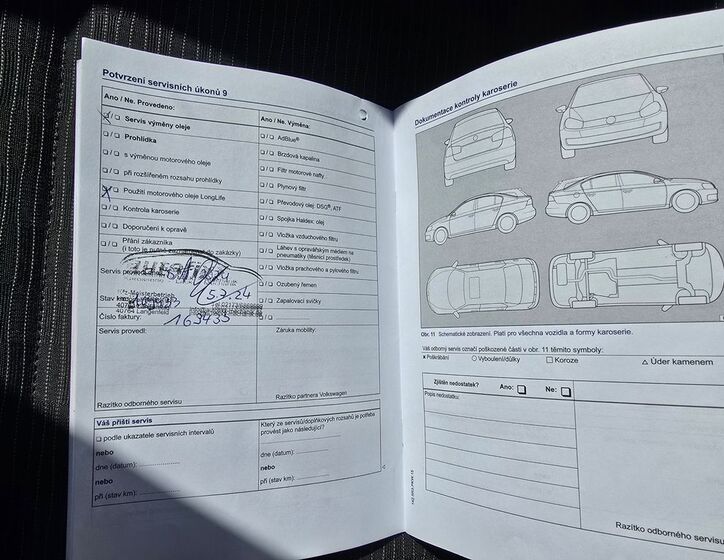 Potvrzení servisních úkonů 9
Ano / Ne. Provedeno:
❑/❑ Servis výměny oleje
❑/❑ Prohlídka
❑/❑ s výměnou motorového oleje
❑/❑ při rozšířeném rozsahu prohlídky
❑/❑ Použití motorového oleje LongLife
❑/❑ Kontrola karoserie
❑/❑ Doporučení k opravě
❑/❑ Přání zákazníka
(i toto je nutné zaznamenat do zakázky)
Servis proveden
5.7.24
Stav km:
Kfz-Meisterbetrieb
40764 Langenfeld
Číslo faktury:
163455
Servis provedl:
Razítko odborného servisu
Ano / Ne. Výměna:
❑/❑ AdBlue®
❑/❑ Brzdová kapalina
❑/❑ Filtr motorové nafty
❑/❑ Plynový filtr
❑/❑ Převodový olej: DSG®, ATF
❑/❑ Spojka Haldex: olej
❑/❑ Vložka vzduchového filtru
❑/❑ Láhev s opravářským médiem na
pneumatiky (těsnicí prostředek)
❑/❑ Vložka prachového a pylového filtru
❑/❑ Ozubený řemen
❑/❑ Zapalovací svíčky
❑/❑
Záruka mobility:
Razítko partnera Volkswagen
Váš příští servis
❑ podle ukazatele servisních intervalů
nebo
dne (datum): ....................
nebo
při (stav km): ....................
Který ze servisů/doplňkových rozsahů je potřeba
provést jako následující?
dne (datum): ....................
nebo
při (stav km): ....................
Dokumentace kontroly karoserie
Obr. 11 Schematické zobrazení. Platí pro všechna vozidla a formy karoserie.
Váš odborný servis označí poškozené části v obr. 11 těmito symboly:
x Poškrábání ○ Vyboulení/důlky □ Koroze △ Úder kamenem
Zjištěn nedostatek? Ano: ❑ Ne: ❑
Popis nedostatku:
Razítko odborného servisu